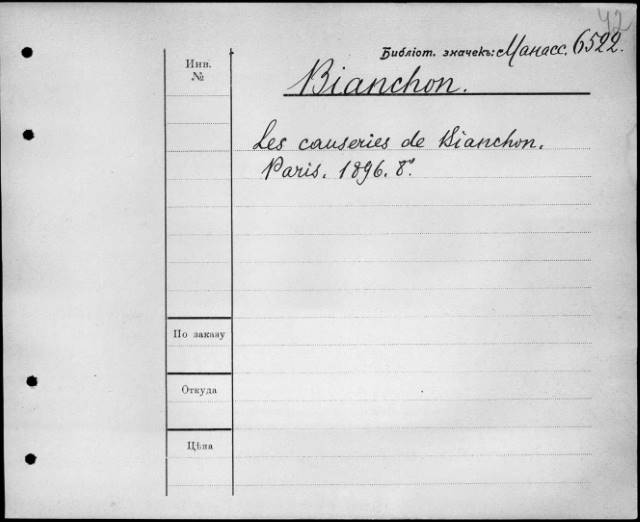 42
Библіот. значекъ: Манасс. 6522.
Инв.
№
Bianchon.
Les causeries de Bianchon.
Paris. 1896. 8°.
По заказу
Откуда
Цѣна